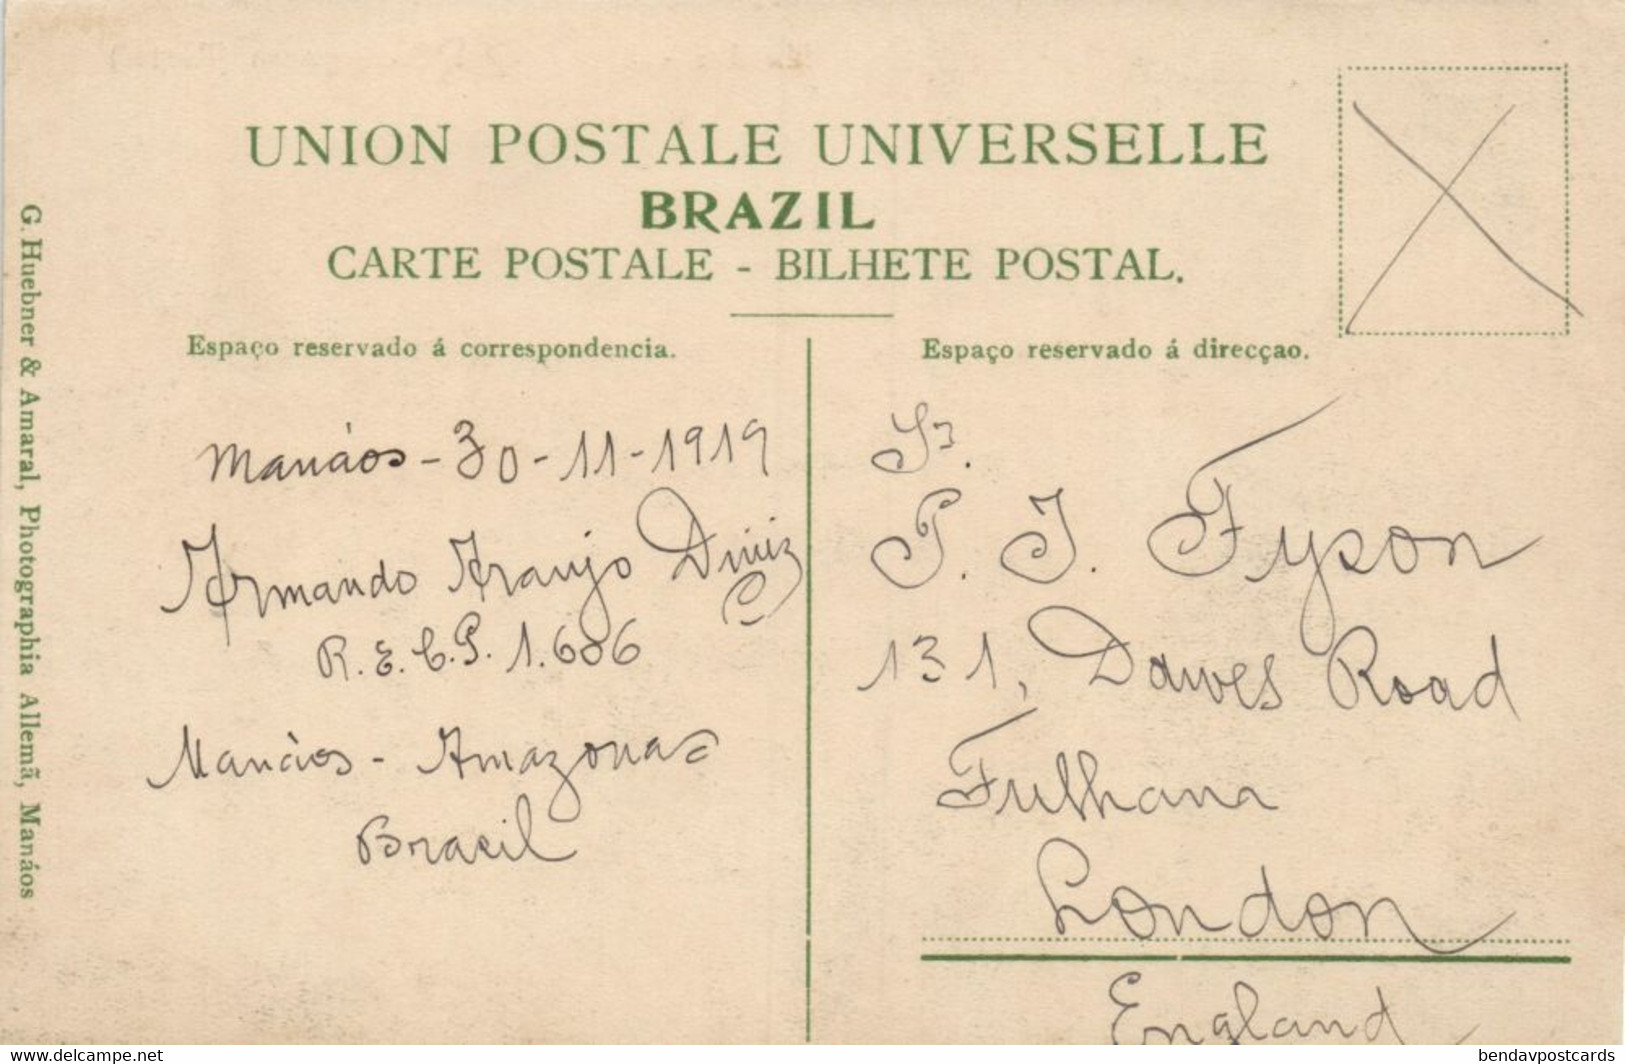 UNION POSTALE UNIVERSELLE
BRAZIL
CARTE POSTALE - BILHETE POSTAL.
Espaço reservado á correspondencia.
Manáos - 30 - 11 - 1919
Armando Araujo Diniz
R.E.C.P. 1.606
Manáos - Amazonas
Brasil
Espaço reservado á direcçao.
Sr.
P. J. Fyson
131, Dawes Road
Fulham
London
England
G. Huebner & Amaral, Photographia Allemã, Manáos
www.delcampe.net
bendavpostcards